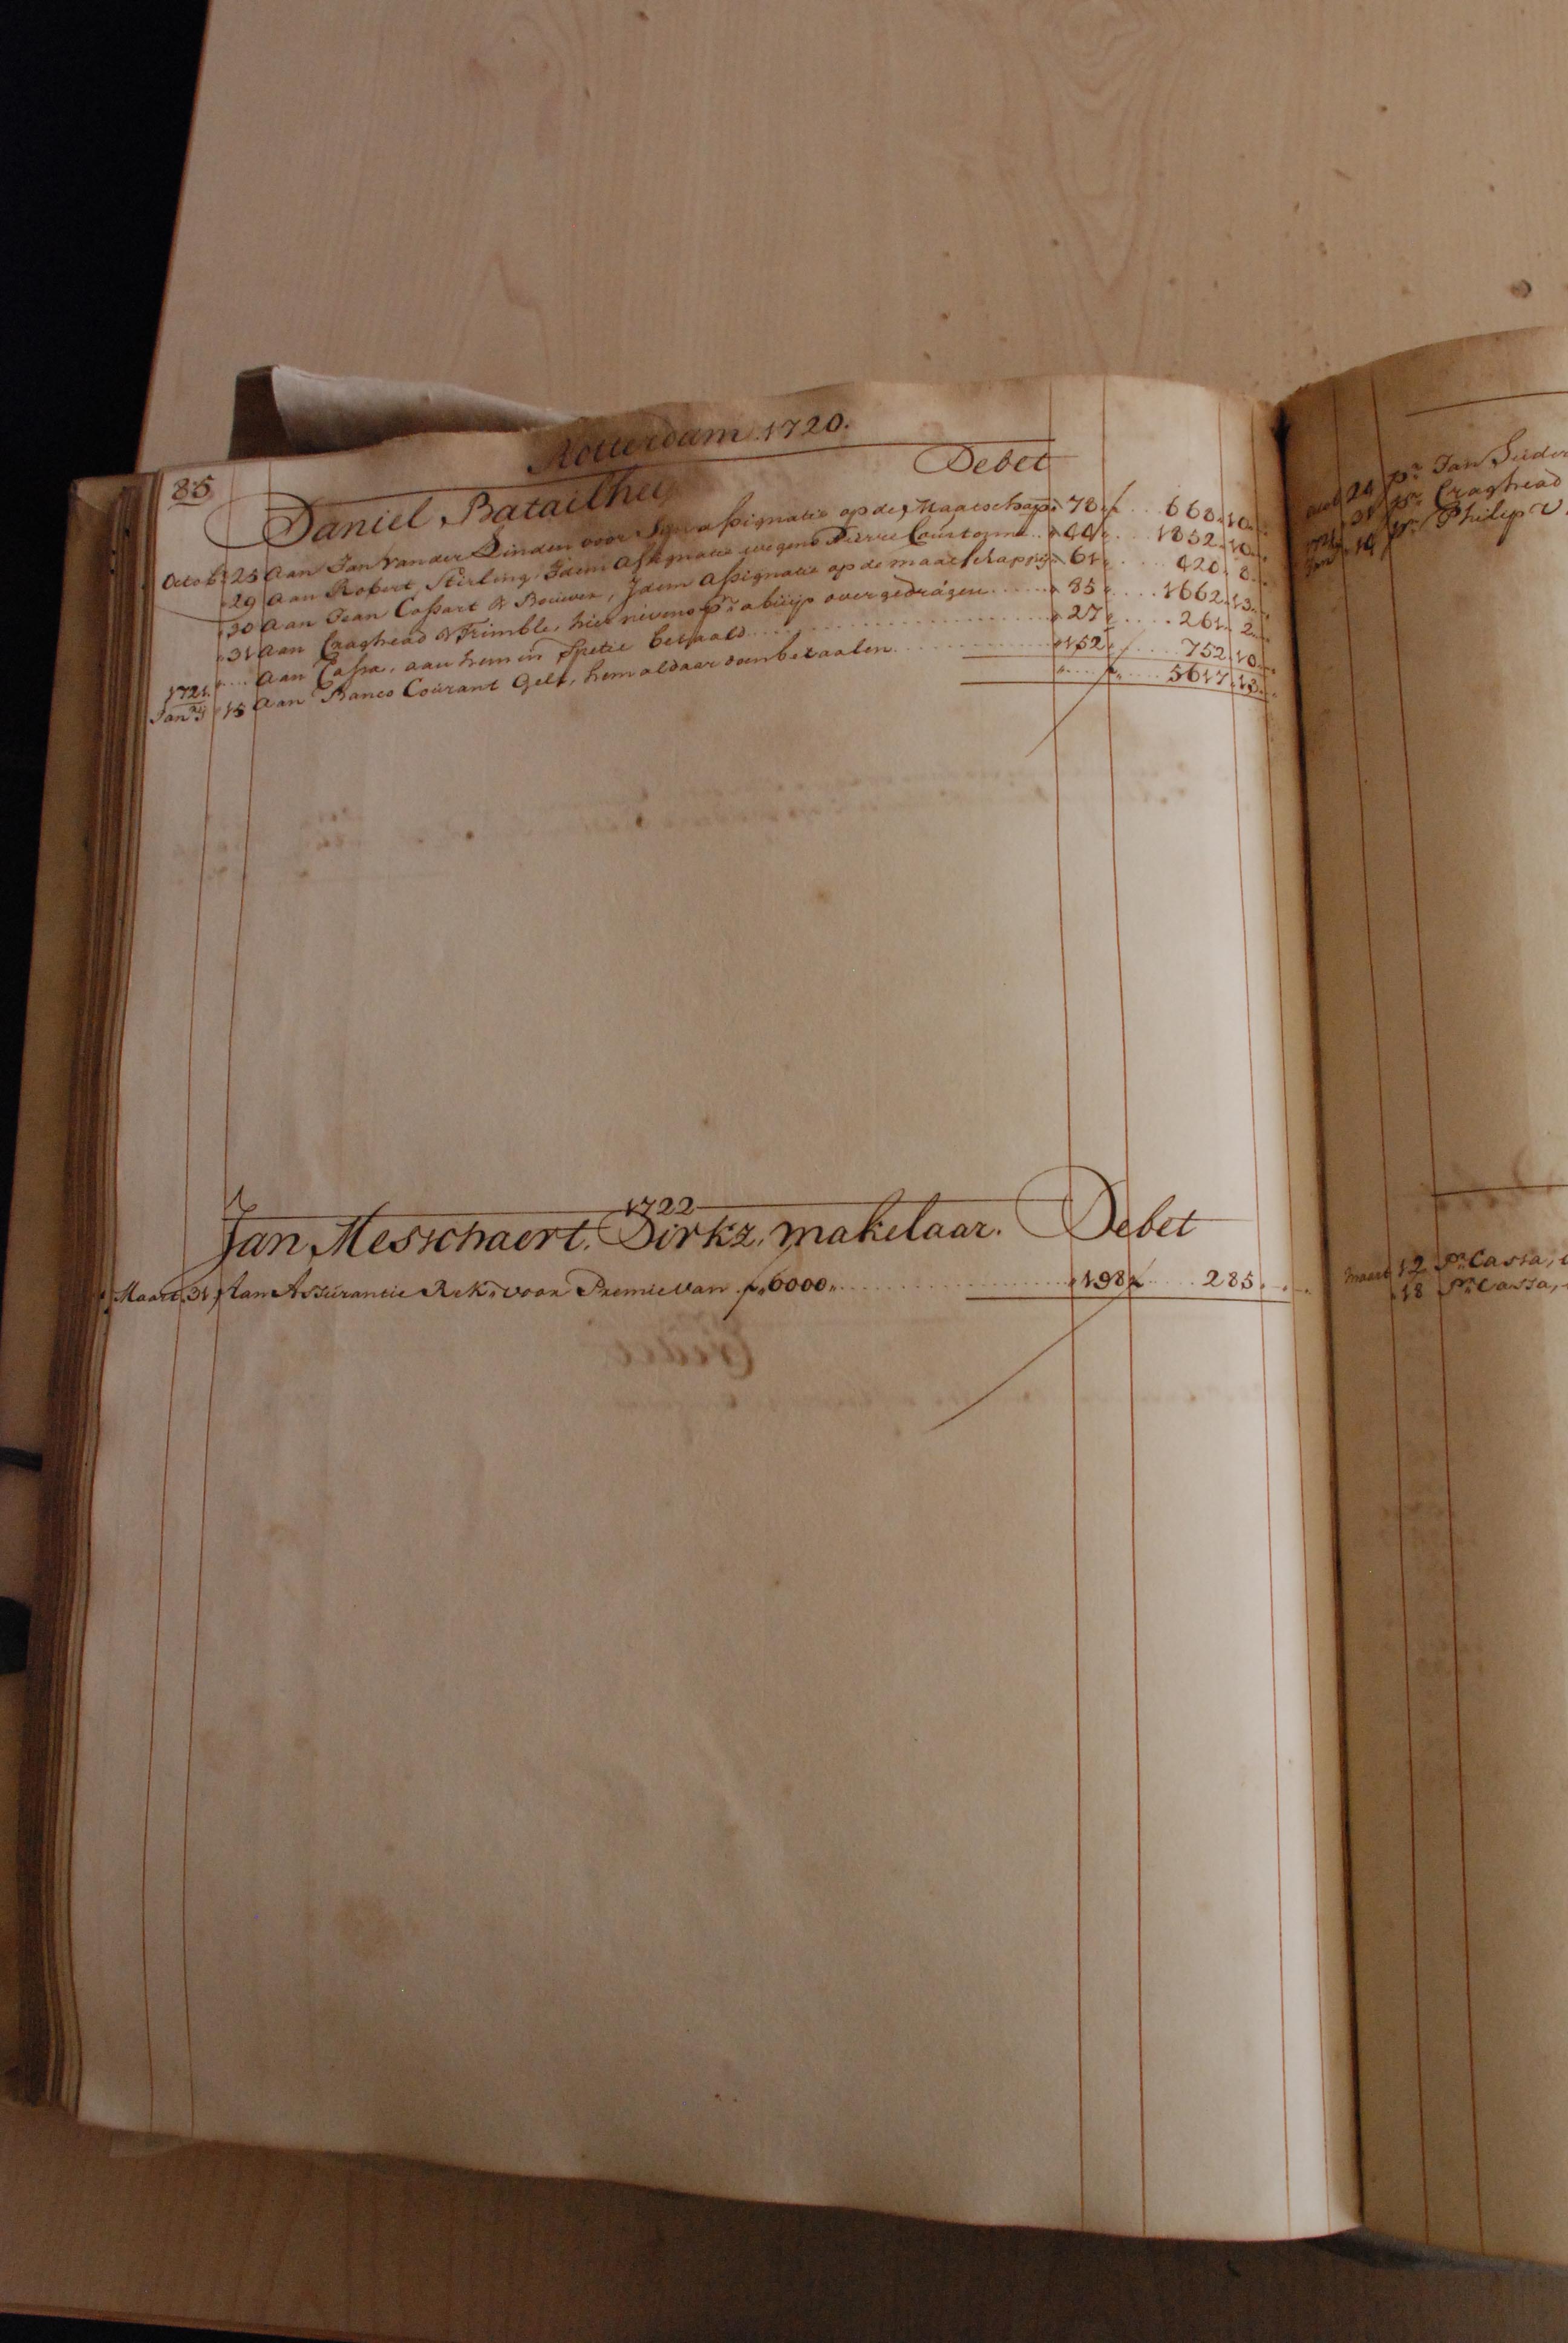 Rotterdam 1720.
85
Daniel Batailhey Debet
Octob: 25 Aan Jan Van der Linden voor Zyn assignatie op de Maatschap: 78 f 668.10
29 Aan Robert Stirling, Idem Assignatie wegens Pierre Courtonne 44 1852.10
30 Aan Jean Cossart & Bouwer, Idem Assignatie op de maatschappy 61 420.8
31 Aan Craghead & Trimble, hier nevens pr abüijs overgedragen 85 1662.13
Aan Cassa, aan hem in Spetie betaald 27 261.2
1721.
Janry 15 Aan Banco Courant Gelt, hem aldaar doen betaalen 152 752.10
5617.13
1722
Jan Messchaert, Dirkz, makelaar. Debet
Maart 31 Aan Assurantie Rek: voor Premie van f 6000 198 f 285
24 pr Jan Suder
31 pr Craghead
1721
Jan 14 pr Philip V
Maart 12 Pr Cassa,
18 Pr Cassa,